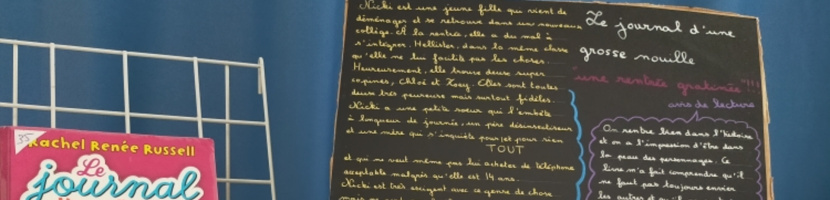 Nicki est une jeune fille qui vient de
déménager et se retrouve dans un nouveau
collège. A la rentrée, elle a du mal à
s'intégrer. Hellister, dans la même classe
qu'elle ne lui facilite pas les choses.
Heureusement, elle trouve deux super
copines, Chloé et Zoey. Elles sont toutes
deux très peureuse mais surtout fidèles.
Nicki a une petite soeur qui l'embête
à longueur de journée, un père désinsectiseur
et une mère qui s'inquiète pour
TOUT
et qui ne veut même pas lui acheter de téléphone
acceptable malgré qu'elle est 14 ans.
Nicki est très exigent avec ce genre de chose
Le journal d'une
grosse nouille
"une rentrée gratinée"!!!
avis de lecture
On rentre bien dans l'histoire
et on a l'impression d'être dans
la peau des personnages. Ce
livre m'a fait comprendre qu'il
ne faut pas toujours envier
les autres et qu'il
35
Rachel Renée Russell
Le
journal